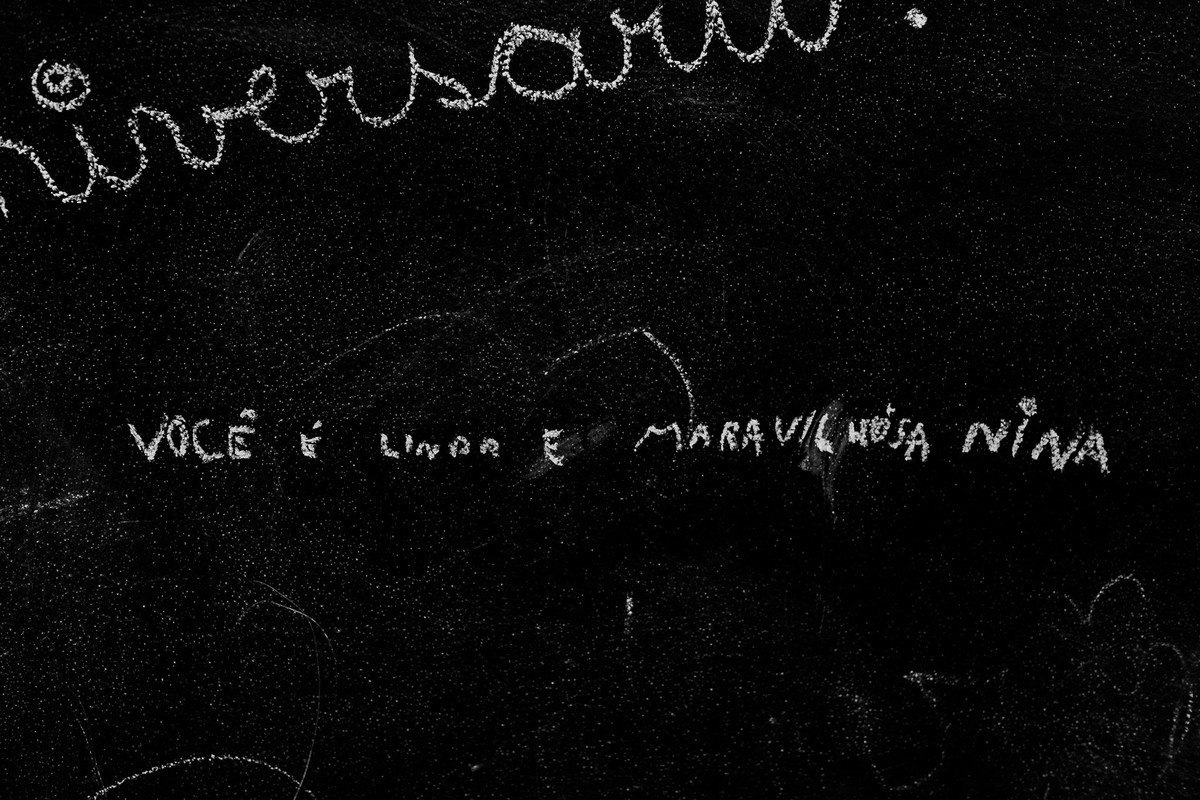 niversario!
VOCÊ É LINDA E MARAVILHOSA NINA